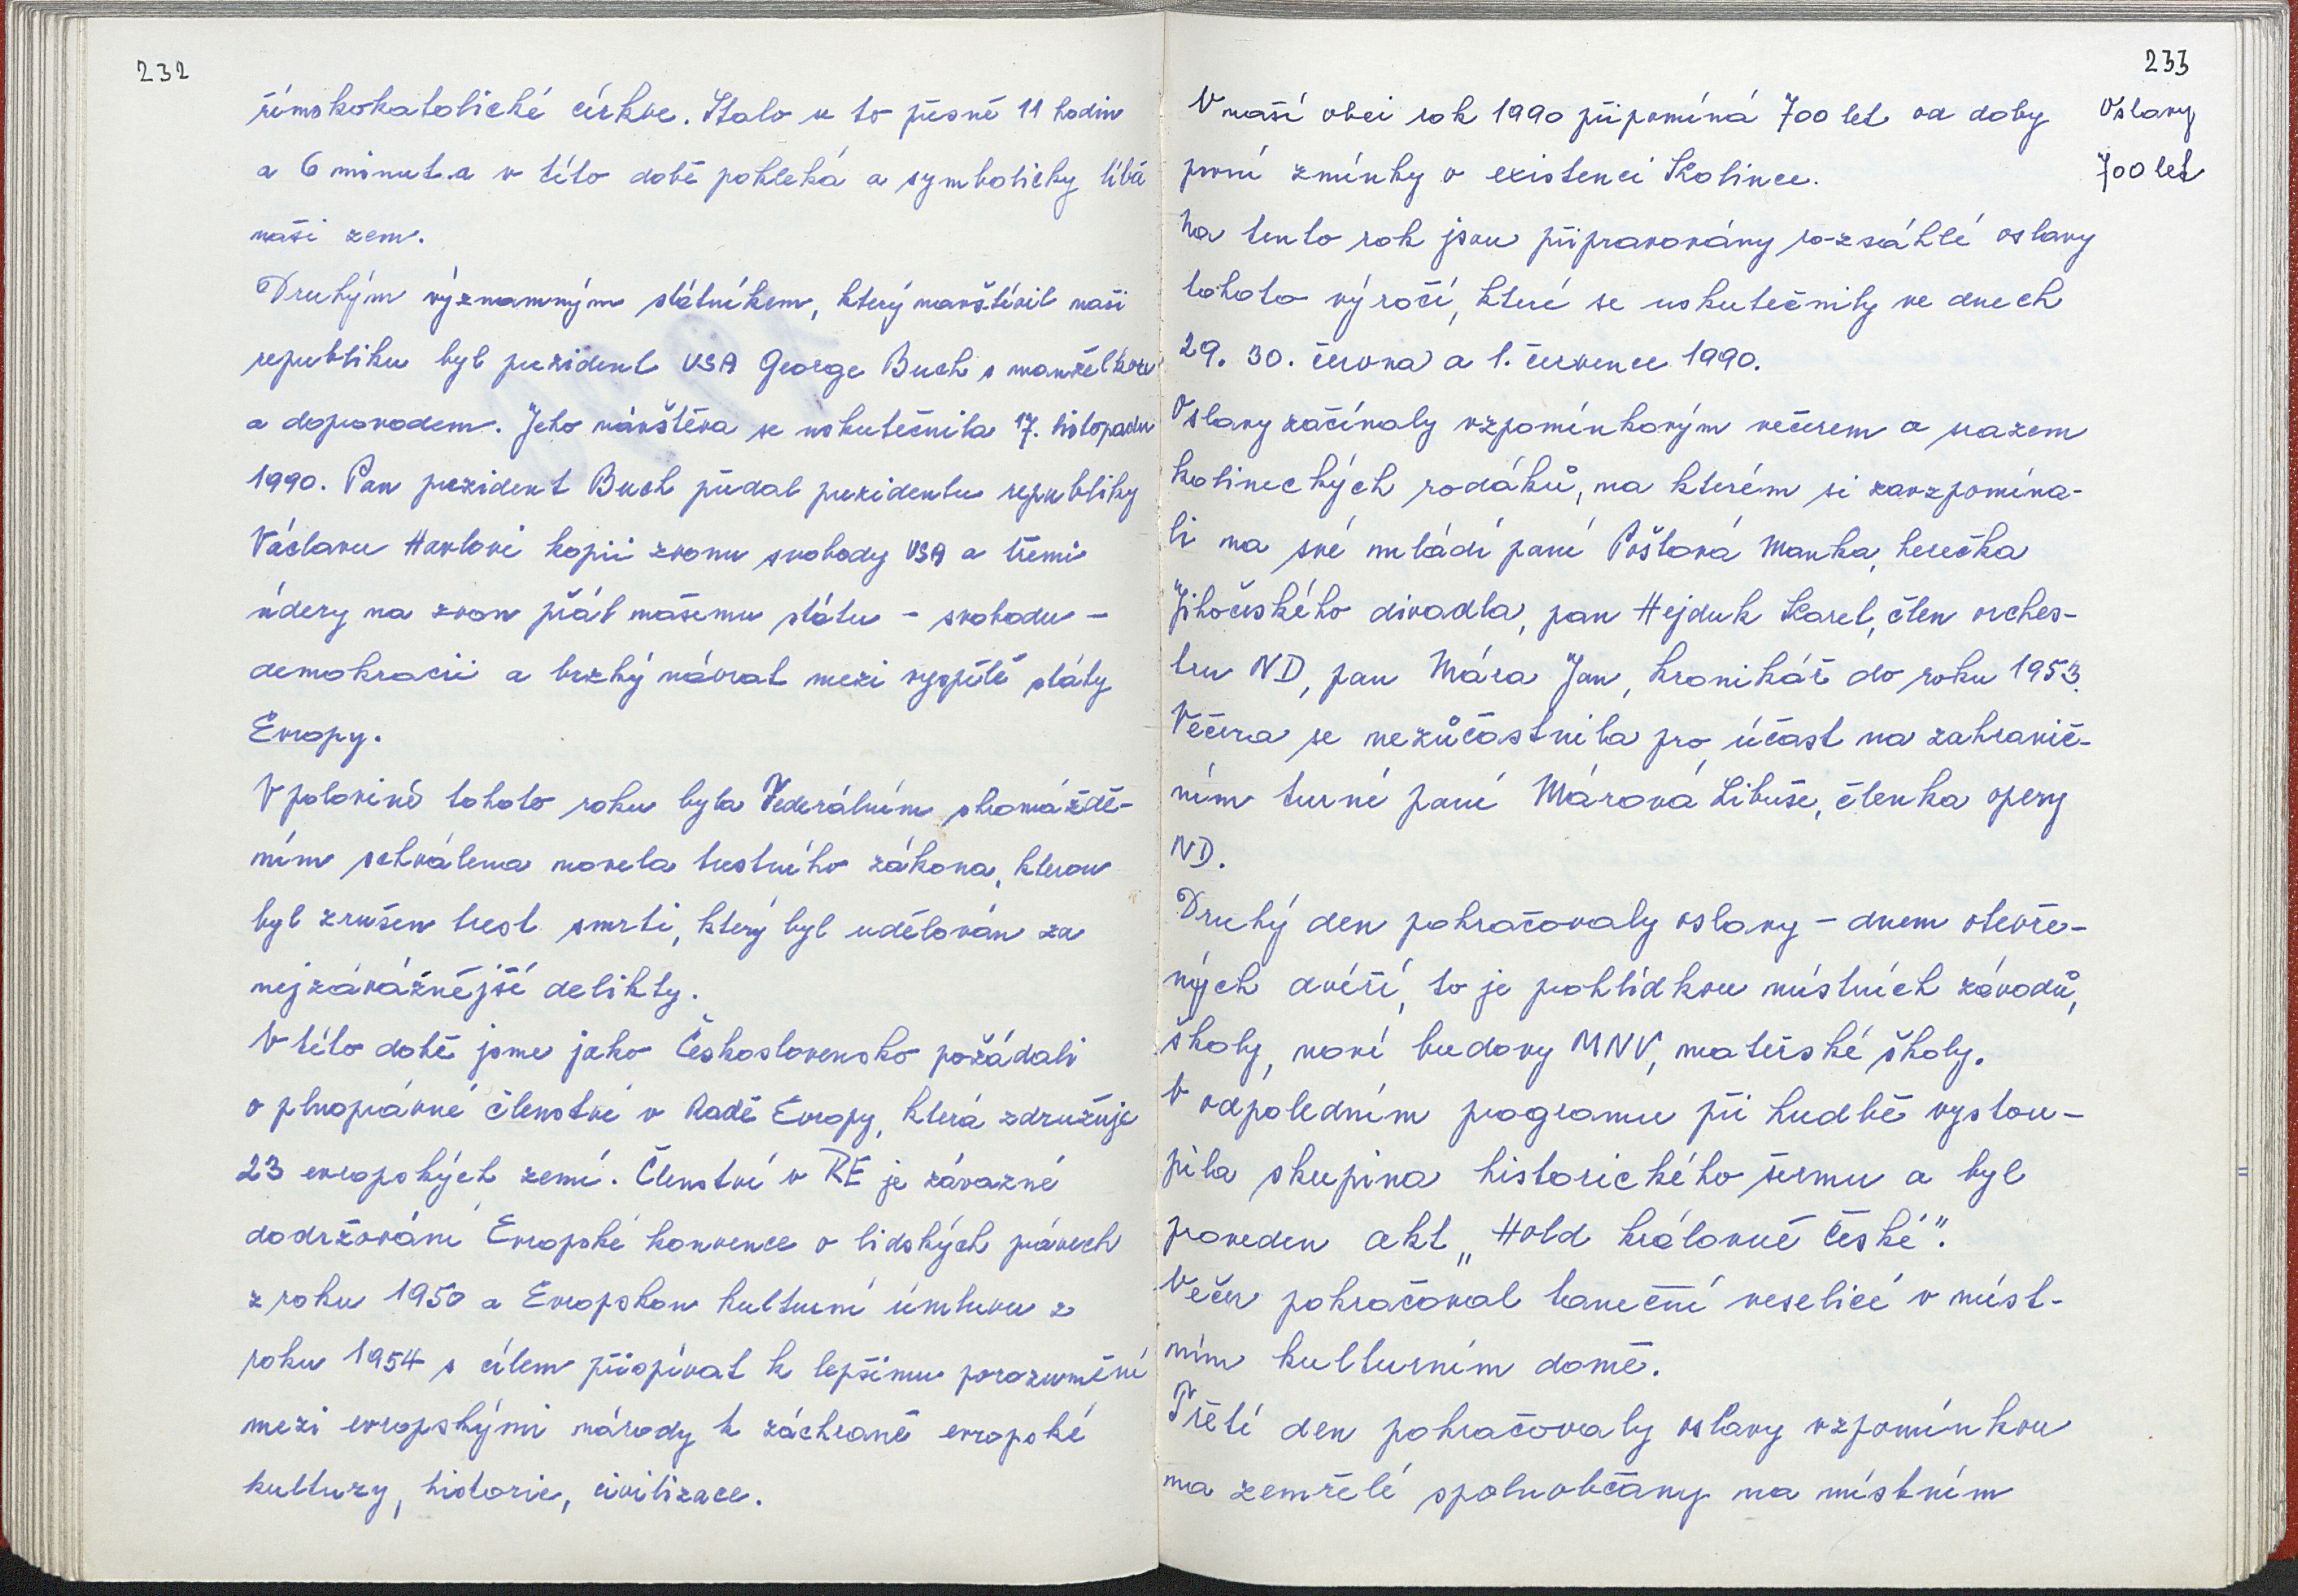 232
římskokatolické církve. Stalo se to přesně 11 hodin
a 6 minut a v této době pokleká a symbolicky líbá
naši zem.
Druhým významným státníkem, který navštívil naši
republiku byl prezident USA George Buch s manželkou
a doprovodem. Jeho návštěva se uskutečnila 17. listopadu
1990. Pan prezident Buch předal prezidentu republiky
Václavu Havlovi kopii zvonu svobody USA a třemi
údery na zvon přál našemu státu - svobodu -
demokracii a brzký návrat mezi vyspělé státy
Evropy.
V polovině tohoto roku byla Federálním shromáždě-
ním schválena novela trestního zákona, kterou
byl zrušen trest smrti, který byl udělován za
nejzávážnější delikty.
V této době jsme jako Československo požádali
o plnoprávné členství v Radě Evropy, která združuje
23 evropských zemí. Členství v RE je závazné
dodržování Evropské konvence o lidských právech
z roku 1950 a Evropskou kulturní úmluvu z
roku 1954 s cílem přispívat k lepšímu porozumění
mezi evropskými národy k záchraně evropské
kultury, historie, civilizace.
233
Oslavy
700 let
V naší obci rok 1990 připomíná 700 let od doby
první zmínky o existenci Kolince.
Na tento rok jsou připravovány rozsáhlé oslavy
tohoto výročí, které se uskutečnily ve dnech
29. 30. června a 1. července 1990.
Oslavy začínaly vzpomínkovým večerem a srazem
kolineckých rodáků, na kterém si zavzpomína-
li na své mládí paní Pošlová Manka, herečka
Jihočeského divadla, pan Hejduk Karel, člen orches-
tru ND, pan Mára Jan, kronikář do roku 1953.
Večera se nezůčastnila pro účast na zahranič-
ním turné paní Márová Libuše, členka opery
ND.
Druhý den pokračovaly oslavy - dnem otevře-
ných dvéří, to je prohlídkou místních závodů,
školy, nové budovy MNV, mateřské školy.
V odpoledním programu při hudbě vystou-
pila skupina historického šermu a byl
proveden akt „Hold královně české".
Večer pokračoval taneční veselicí v míst-
ním kulturním domě.
Třetí den pokračovaly oslavy vzpomínkou
na zemřelé spoluobčany na místním